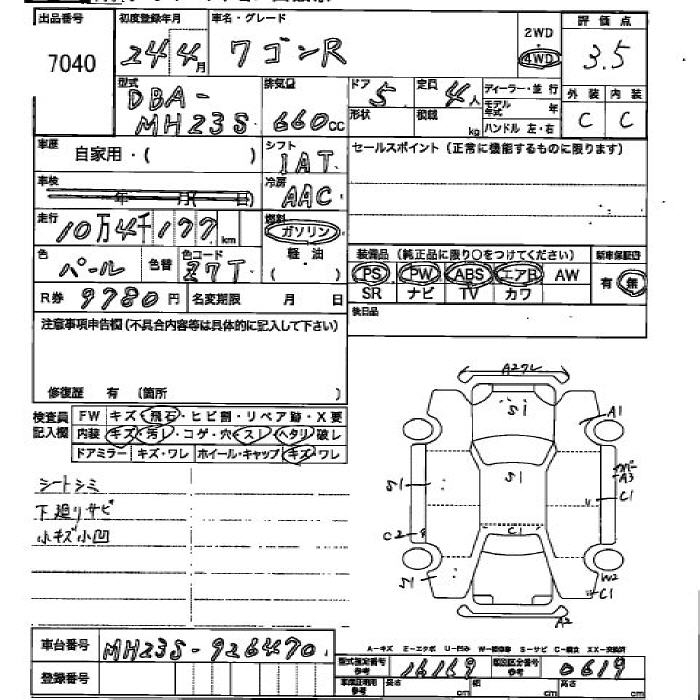 出品番号
7040
初度登録年月
24年4月
車名・グレード
ワゴンR
2WD
4WD
評価点
3.5
外装 内装
C C
型式
DBA-
MH23S
排気量
660cc
ドア
5
定員
4人
形状
積載
kg
ディーラー・並行
モデル年式 年
ハンドル 左・右
車歴
自家用・( )
シフト
IAT
セールスポイント (正常に機能するものに限ります)
車検
年 月( 日)
冷房
AAC
走行
10万4千177km
燃料
ガソリン
・
軽・油
( )
色
パール
色替
色コード
Z7T
装備品 (純正品に限り○をつけてください)
PS PW ABS エアB AW
SR ナビ TV カワ
新車保証書
有・無
R券 9780円
名変期限 月 日
後日品
注意事項申告欄 (不具合内容等は具体的に記入して下さい)
修復歴 有 (箇所 )
検査員記入欄
FW キズ・飛石・ヒビ割・リペア跡・X要
内装 キズ・汚レ・コゲ・穴・スレ・ヘタリ・破レ
ドアミラー キズ・ワレ ホイール・キャップ キズ・ワレ
シートシミ
下廻りサビ
小キズ小凹
A2ワレ
S1
A1
S1
S1
カバー
A3
C1
U
C2
C1
S1
W2
C1
A2
車台番号
MH23S-926470
登録番号
A-キズ E-エクボ U-凹み W-補修跡 S-サビ C-腐食 XX-交換済
型式指定番号 参考
16169
類別区分番号 参考
0619
車庫証明用 参考
長さ cm
幅 cm
高さ cm